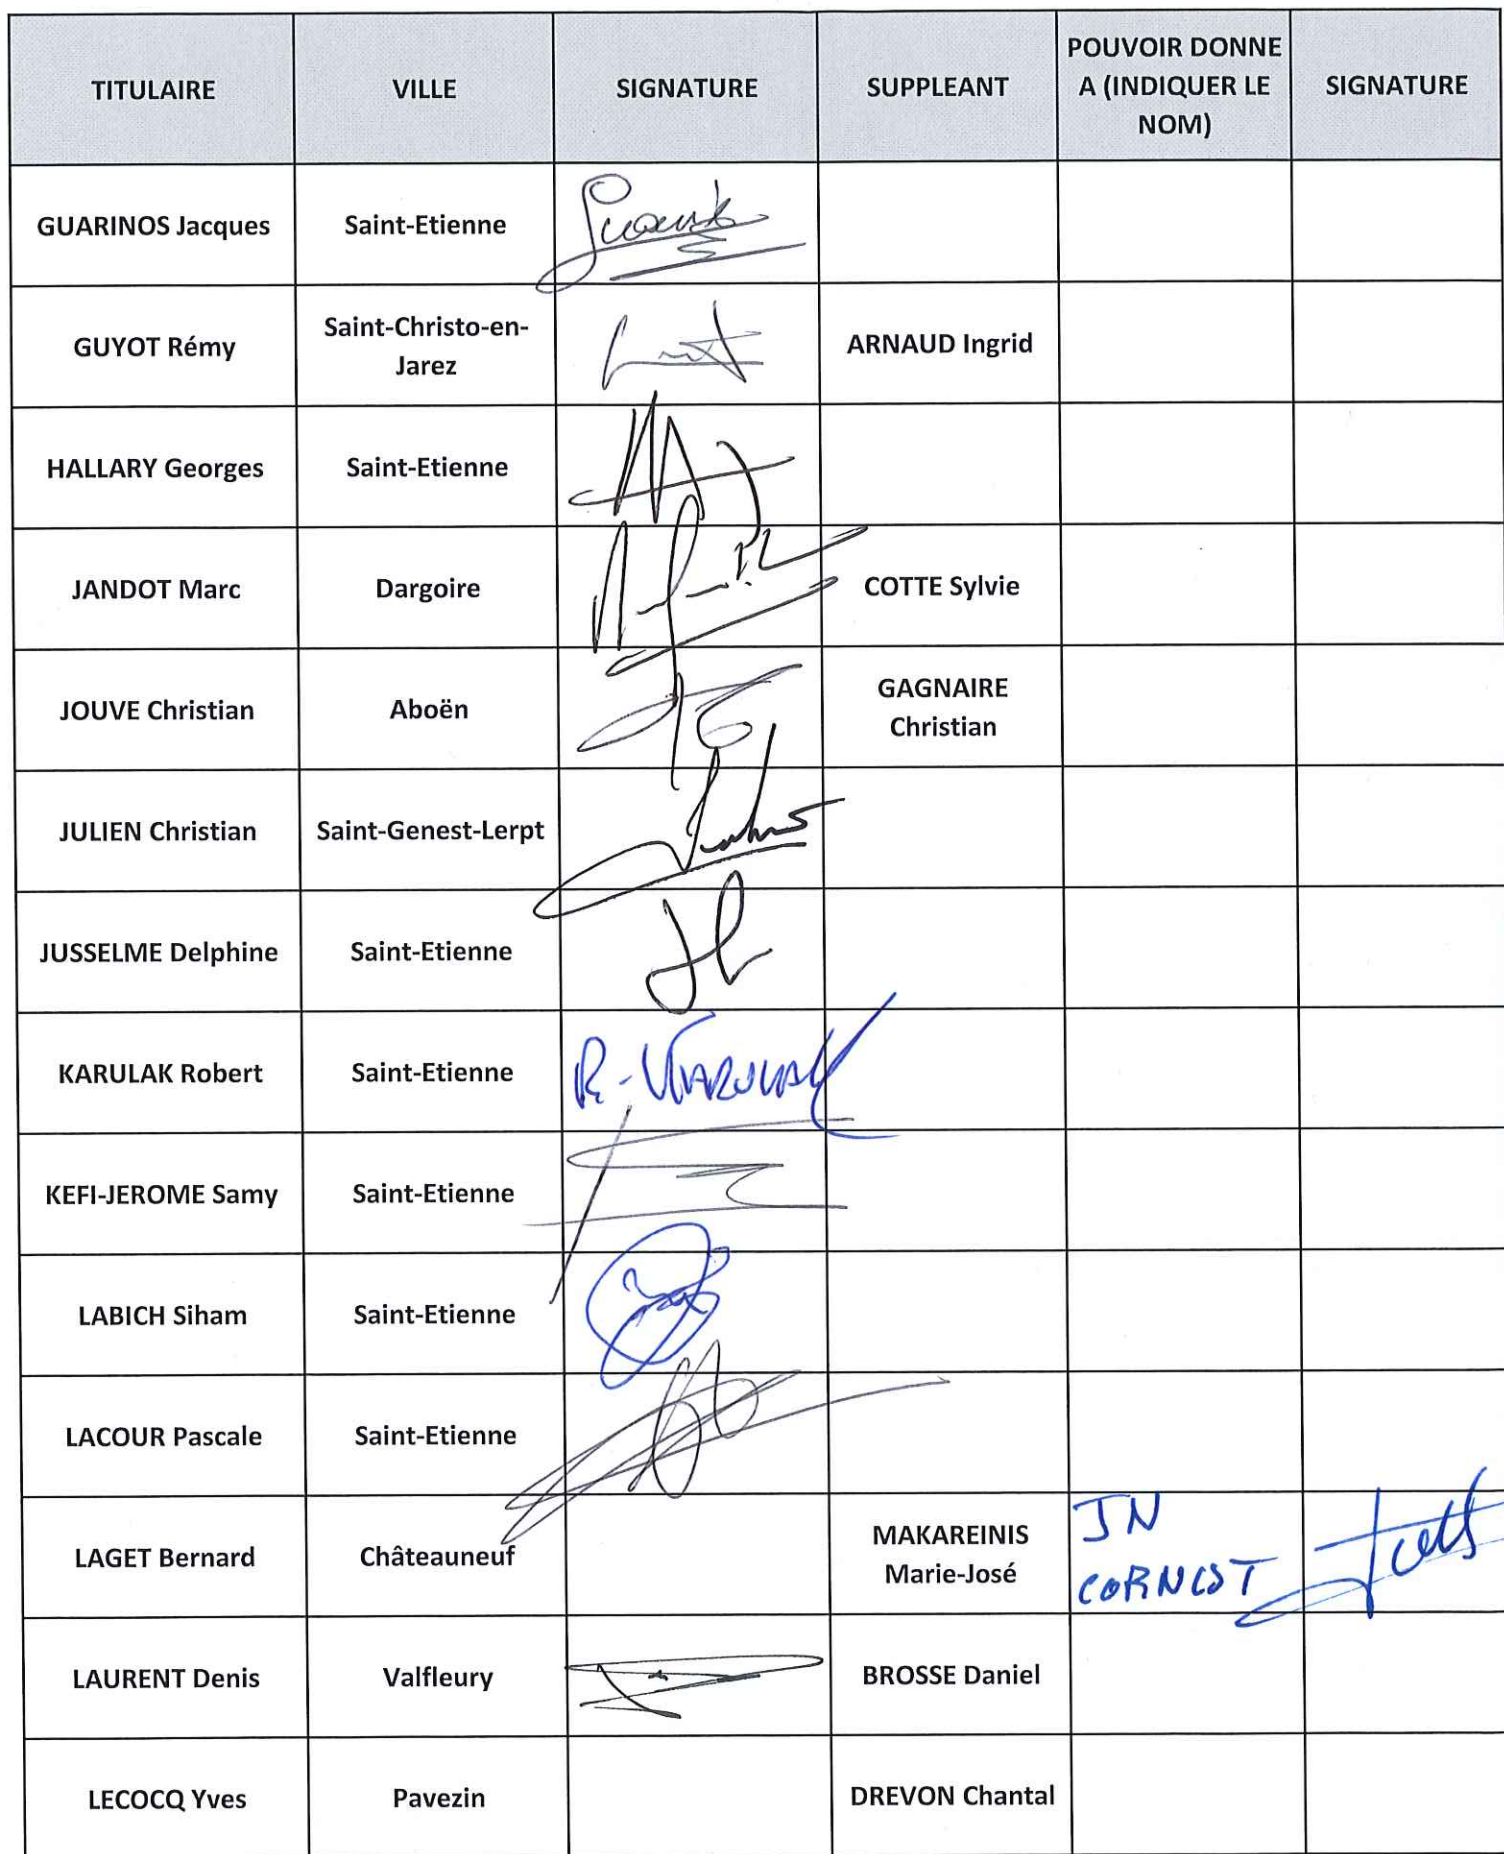 TITULAIRE
VILLE
SIGNATURE
SUPPLEANT
POUVOIR DONNE
A (INDIQUER LE
NOM)
SIGNATURE
GUARINOS Jacques
Saint-Etienne
GUYOT Rémy
Saint-Christo-en-
Jarez
ARNAUD Ingrid
HALLARY Georges
Saint-Etienne
JANDOT Marc
Dargoire
COTTE Sylvie
JOUVE Christian
Aboën
GAGNAIRE
Christian
JULIEN Christian
Saint-Genest-Lerpt
JUSSELME Delphine
Saint-Etienne
KARULAK Robert
Saint-Etienne
R. KARULAK
KEFI-JEROME Samy
Saint-Etienne
LABICH Siham
Saint-Etienne
LACOUR Pascale
Saint-Etienne
LAGET Bernard
Châteauneuf
MAKAREINIS
Marie-José
JN
LAURENT Denis
Valfleury
BROSSE Daniel
LECOCQ Yves
Pavezin
DREVON Chantal